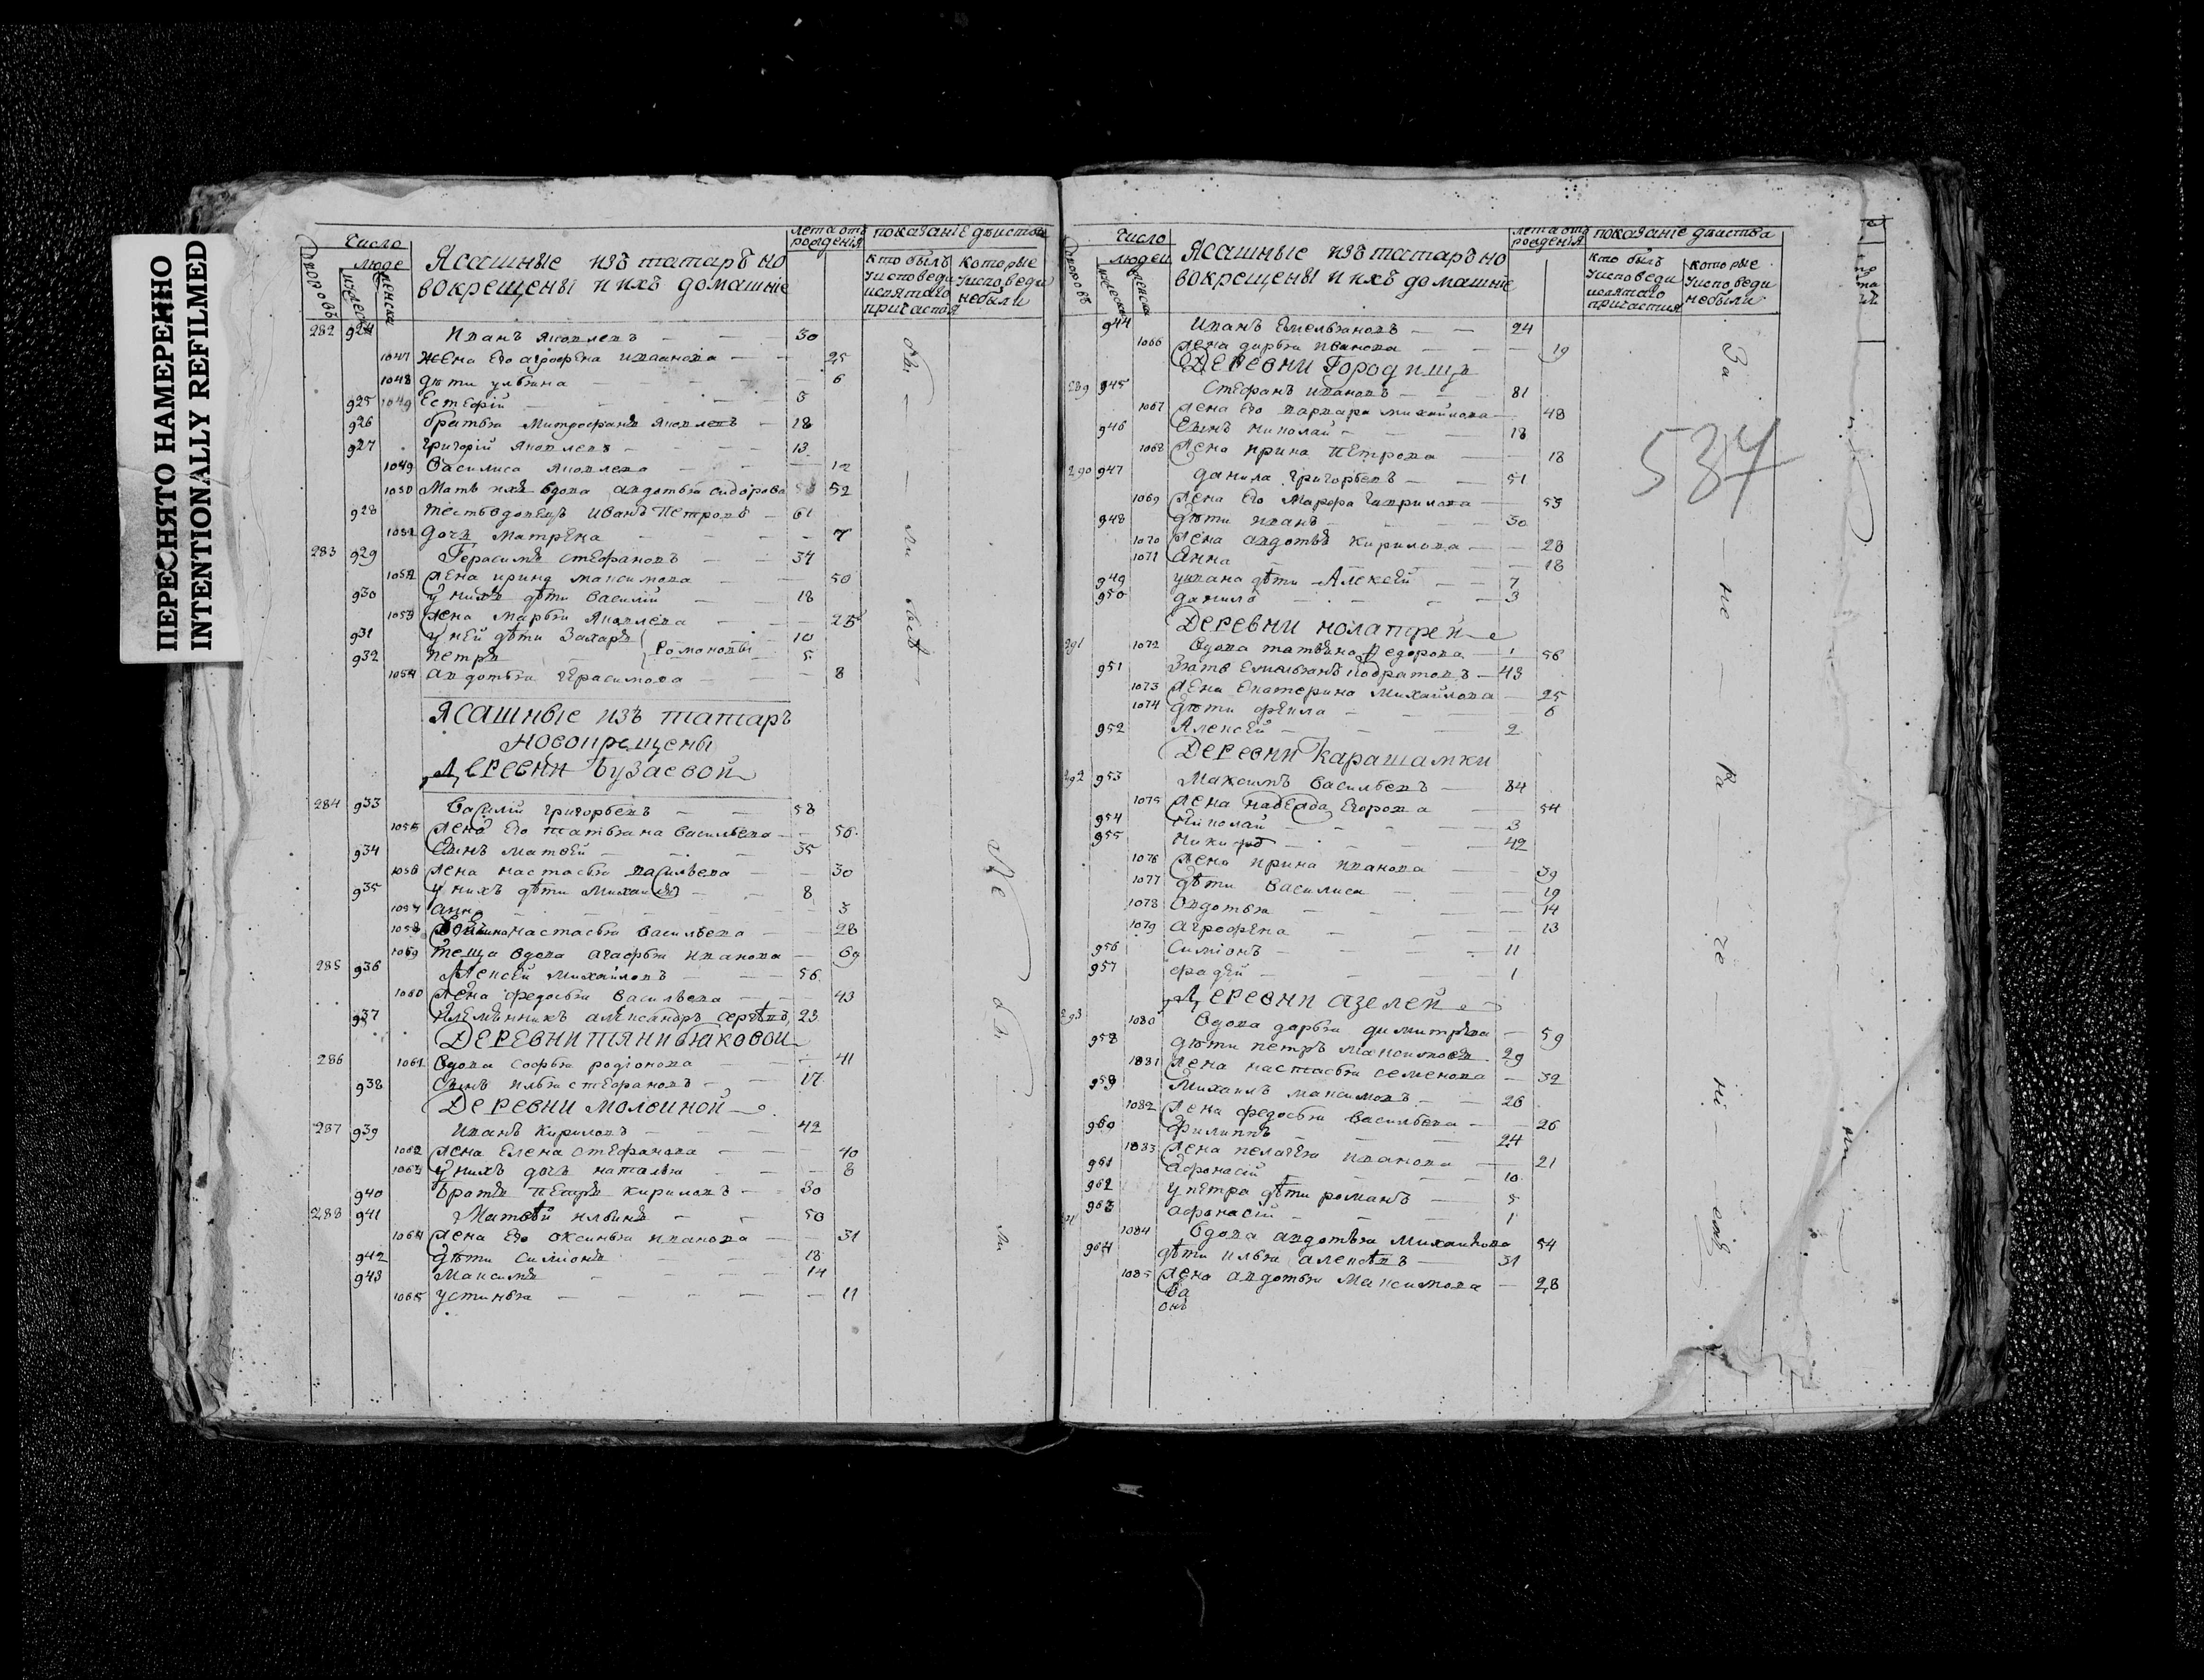 ПЕРЕСНЯТО НАМЕРЕННО
INTENTIONALLY REFILMED
Число
людей
Дворовъ
мужеска
женска
Ясашные изъ татаръ но
вокрещены и ихъ домашнiе
лета отъ
рожденiя
показанiе действа
кто былъ
уисповеди
исвятаго
причастiя
которые
уисповеди
небыли
282 924 Иванъ Яковлевъ 30
1047 Жена его агрофена иванова 25
1048 дѣти ульяна 6
925 1049 Естефiй 3
926 братья Митрофанъ Яковлевъ 18
927 григорiй Яковлевъ 13
1049 Василиса Яковлева 12
1050 Мать ихъ вдова авдотья сидорова 52
928 тесть вдовецъ Иванъ Петровъ 61
1051 дочь Матрена 7
283 929 Герасимъ стефановъ 34
1052 жена ирина максимова 50
930 у нихъ дѣти василiй 18
1053 жена марья Яковлева 25
931 у ней дѣти Захаръ Романовы 10
932 петръ 5
1054 авдотья герасимова 8
Ясашные изъ татаръ
новокрещены
Деревни Бузаевой
284 933 Василiй григорьевъ 58
1055 жена его татьяна васильева 56
934 сынъ матвѣй 35
1056 жена настасья васильева 30
935 у нихъ дѣти михаило 8
1057 анна 3
1058 настасья васильева 28
1059 теща вдова агафья иванова 69
285 936 Алексѣй Михайловъ 56
1060 жена федосья васильева 43
937 племянникъ александръ 23
Деревни тянибяковой
286 1061 вдова софья родiонова 41
938 сынъ илья стефановъ 17
Деревни молвиной
287 939 Иванъ Кириловъ 42
1062 жена Елена стефанова 40
1063 у нихъ дочь наталья 8
940 братъ петръ кириловъ 30
288 941 Матвѣй ильинъ 50
1064 жена его оксинья иванова 31
942 дѣти симiонъ 18
943 Максимъ 14
1065 устинья 11
Число
людей
Дворовъ
мужеска
женска
Ясашные изъ татаръ но
вокрещены и ихъ домашнiе
лета отъ
рожденiя
показанiе действа
кто былъ
уисповеди
исвятаго
причастия
которые
уисповеди
небыли
944 Иванъ Емельяновъ 24
1066 жена дарья иванова 19
Деревни Городищъ
289 945 Стефанъ ивановъ 81
1067 жена его варвара михайлова 48
946 Сынъ николай 18
1068 жена ирина Петрова 18
290 947 данила григорьевъ 51
1069 жена его Марфа гаврилова 53
948 дѣти иванъ 30
1070 жена авдотья кирилова 28
1071 Анна 18
949 у ивана дѣти Алексѣй 7
950 данило 3
291 1072 Вдова татьяна федорова 56
951 зять Емельянъ кодратовъ 43
1073 жена Екатерина Михайлова 25
1074 дѣти фекла 6
952 Алексѣй 2
Деревни Карашамки
292 953 Максимъ васильевъ 84
1075 жена надежда Егорова 54
954 николай 3
955 никифоръ 42
1076 жена ирина иванова 39
1077 дѣти василиса 19
1078 авдотья 14
1079 агрофена 13
956 симiонъ 11
957 фадѣй 1
Деревни азелей
293 1080 Вдова дарья димитрева 59
958 дѣти петръ максимовъ 29
1081 жена настасья семенова 32
959 Михаилъ максимовъ 26
1082 жена федосья васильева 26
960 филиппъ 24
1083 жена пелагея иванова 21
961 афонасiй 10
962 у петра дѣти романъ 5
963 афонасiй 1
1084 Вдова авдотья Михаилова 54
964 дѣти илья алексѣевъ 31
1085 жена авдотья Максимова 28
534